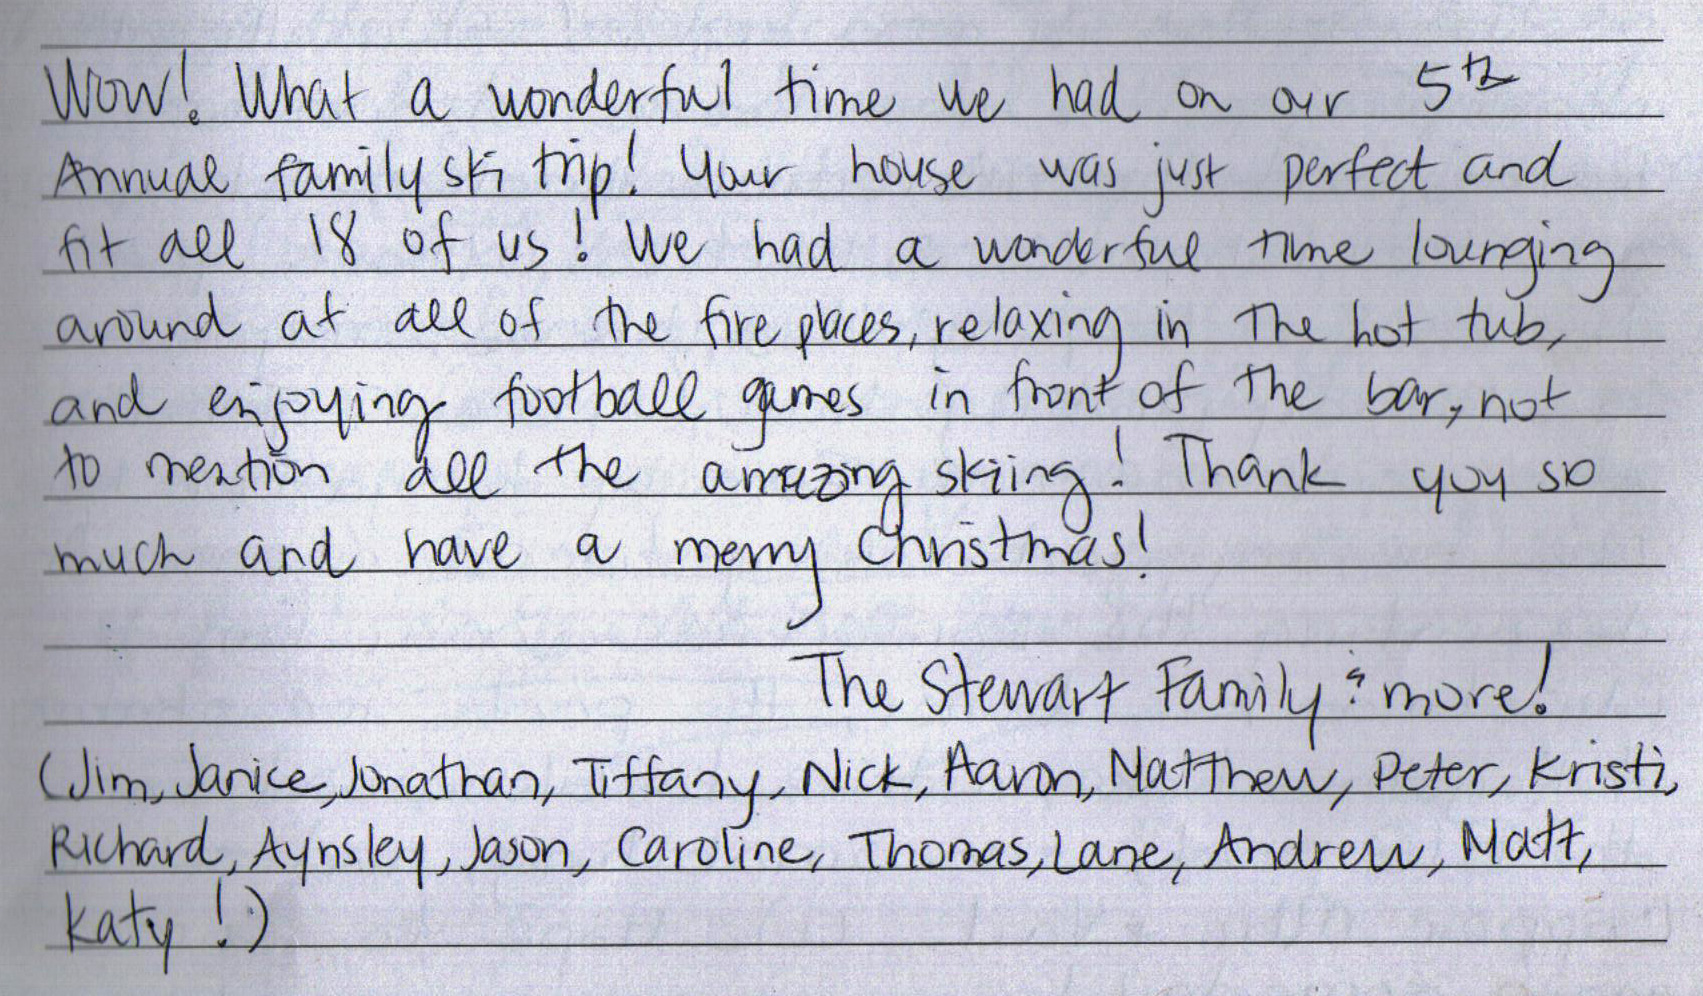 Wow! What a wonderful time we had on our 5th
Annual family ski trip! Your house was just perfect and
fit all 18 of us! We had a wonderful time lounging
around at all of the fire places, relaxing in the hot tub,
and enjoying football games in front of the bar, not
to mention all the amazing skiing! Thank you so
much and have a merry Christmas!
The Stewart Family & more!
(Jim, Janice, Jonathan, Tiffany, Nick, Aaron, Matthew, Peter, Kristi,
Richard, Aynsley, Jason, Caroline, Thomas, Lane, Andrew, Matt,
Katy!)